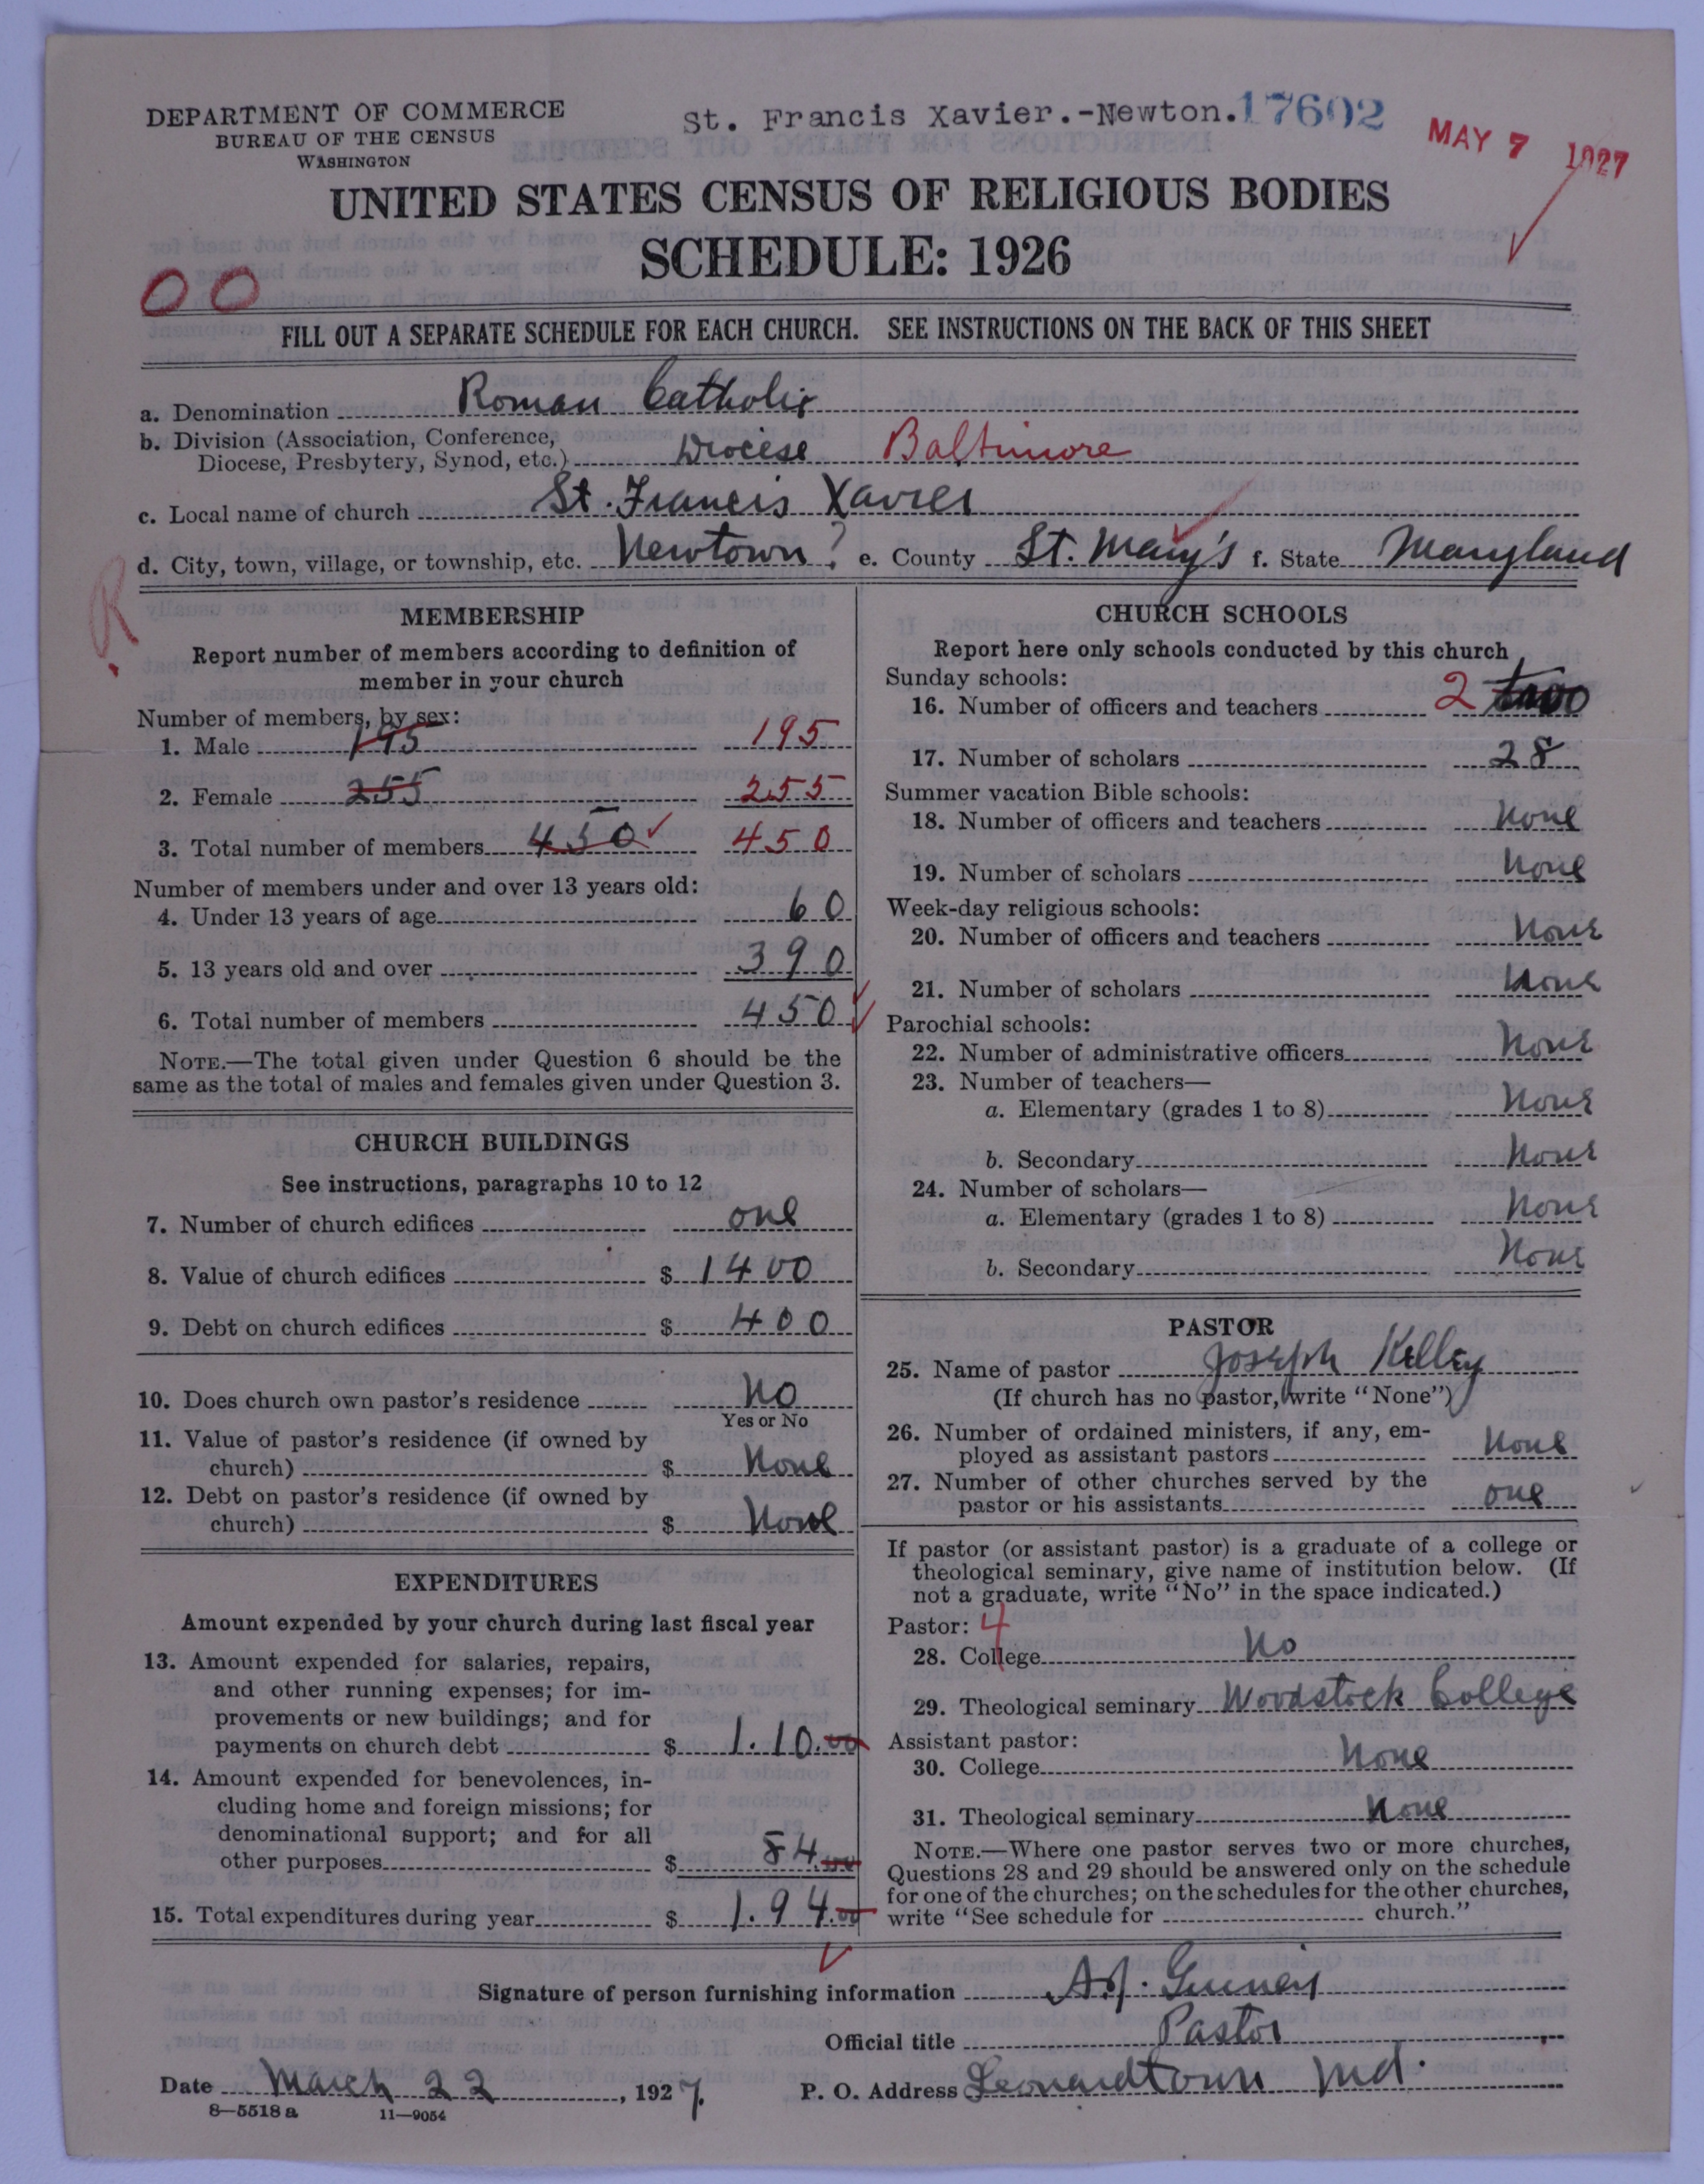 DEPARTMENT OF COMMERCE
BUREAU OF THE CENSUS
WASHINGTON
St. Francis Xavier.-Newton. 17602
MAY 7 1927
UNITED STATES CENSUS OF RELIGIOUS BODIES
SCHEDULE: 1926
00
FILL OUT A SEPARATE SCHEDULE FOR EACH CHURCH. SEE INSTRUCTIONS ON THE BACK OF THIS SHEET
a. Denomination Roman Catholic
b. Division (Association, Conference,
Diocese, Presbytery, Synod, etc.) Diocese Baltimore
c. Local name of church St. Francis Xavier
d. City, town, village, or township, etc. Newtown ? e. County St. Mary's f. State Maryland
R
MEMBERSHIP
Report number of members according to definition of
member in your church
Number of members, by sex:
1. Male 195 195
2. Female 255 255
3. Total number of members 450 450
Number of members under and over 13 years old:
4. Under 13 years of age 60
5. 13 years old and over 390
6. Total number of members 450
NOTE.—The total given under Question 6 should be the
same as the total of males and females given under Question 3.
CHURCH BUILDINGS
See instructions, paragraphs 10 to 12
7. Number of church edifices one
8. Value of church edifices $ 1400
9. Debt on church edifices $ 400
10. Does church own pastor's residence No
Yes or No
11. Value of pastor's residence (if owned by
church) $ None
12. Debt on pastor's residence (if owned by
church) $ None
EXPENDITURES
Amount expended by your church during last fiscal year
13. Amount expended for salaries, repairs,
and other running expenses; for im-
provements or new buildings; and for
payments on church debt $ 1.10.00
14. Amount expended for benevolences, in-
cluding home and foreign missions; for
denominational support; and for all
other purposes $ 84.00
15. Total expenditures during year $ 1.94.00
CHURCH SCHOOLS
Report here only schools conducted by this church
Sunday schools:
16. Number of officers and teachers 2
17. Number of scholars 28
Summer vacation Bible schools:
18. Number of officers and teachers None
19. Number of scholars None
Week-day religious schools:
20. Number of officers and teachers None
21. Number of scholars None
Parochial schools:
22. Number of administrative officers None
23. Number of teachers—
a. Elementary (grades 1 to 8) None
b. Secondary None
24. Number of scholars—
a. Elementary (grades 1 to 8) None
b. Secondary None
PASTOR
25. Name of pastor Joseph Kelley
(If church has no pastor, write "None")
26. Number of ordained ministers, if any, em-
ployed as assistant pastors None
27. Number of other churches served by the
pastor or his assistants one
If pastor (or assistant pastor) is a graduate of a college or
theological seminary, give name of institution below. (If
not a graduate, write "No" in the space indicated.)
Pastor: 4
28. College No
29. Theological seminary Woodstock College
Assistant pastor:
30. College None
31. Theological seminary None
NOTE.—Where one pastor serves two or more churches,
Questions 28 and 29 should be answered only on the schedule
for one of the churches; on the schedules for the other churches,
write "See schedule for church."
Signature of person furnishing information A.J.
Official title Pastor
Date March 22, 1927. P. O. Address Leonardtown Md.
8—5518 a 11—9054